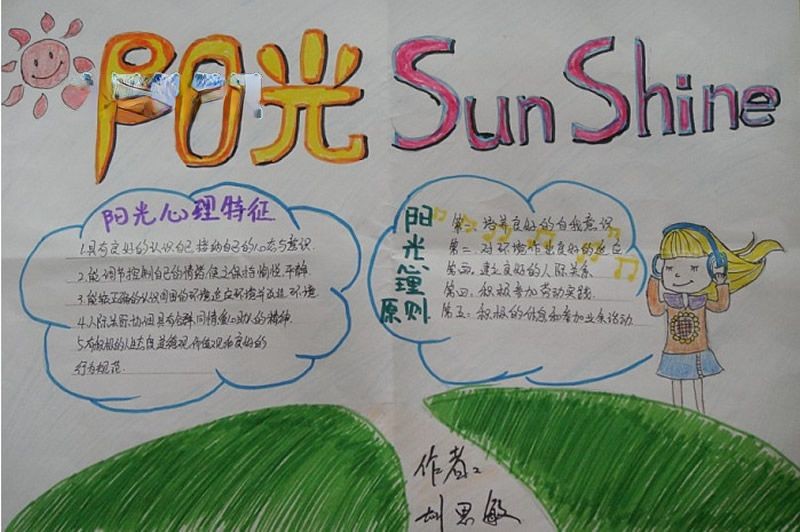 阳光 Sun Shine
阳光心理特征
1.具有良好的认识自己接纳自己的心态与意识.
2.能调节控制自己的情绪使之保持愉悦.平静.
3.能较正确的认识周围的环境适应环境并改造环境.
4.人际关系协调具有合群.同情爱心助人的精神.
5.有积极的人生态度道德观.价值观和良好的
行为规范.
阳光心理原则
第一:培养良好的自我意识
第二:对环境作出良好的适应
建立良好的人际关系
第四:积极参加劳动实践.
第五:积极的休息和参加业余活动.
作者:
刘思敏